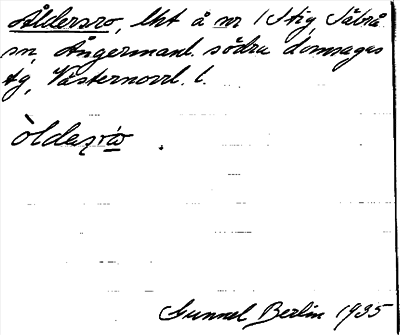 Åldersro, lht å nr 1 Stig, Säbrå
sn, Ångermanl. södra domsagas
tg, Västernorrl. l.
òldaṣró .
Gunnel Berlin 1935